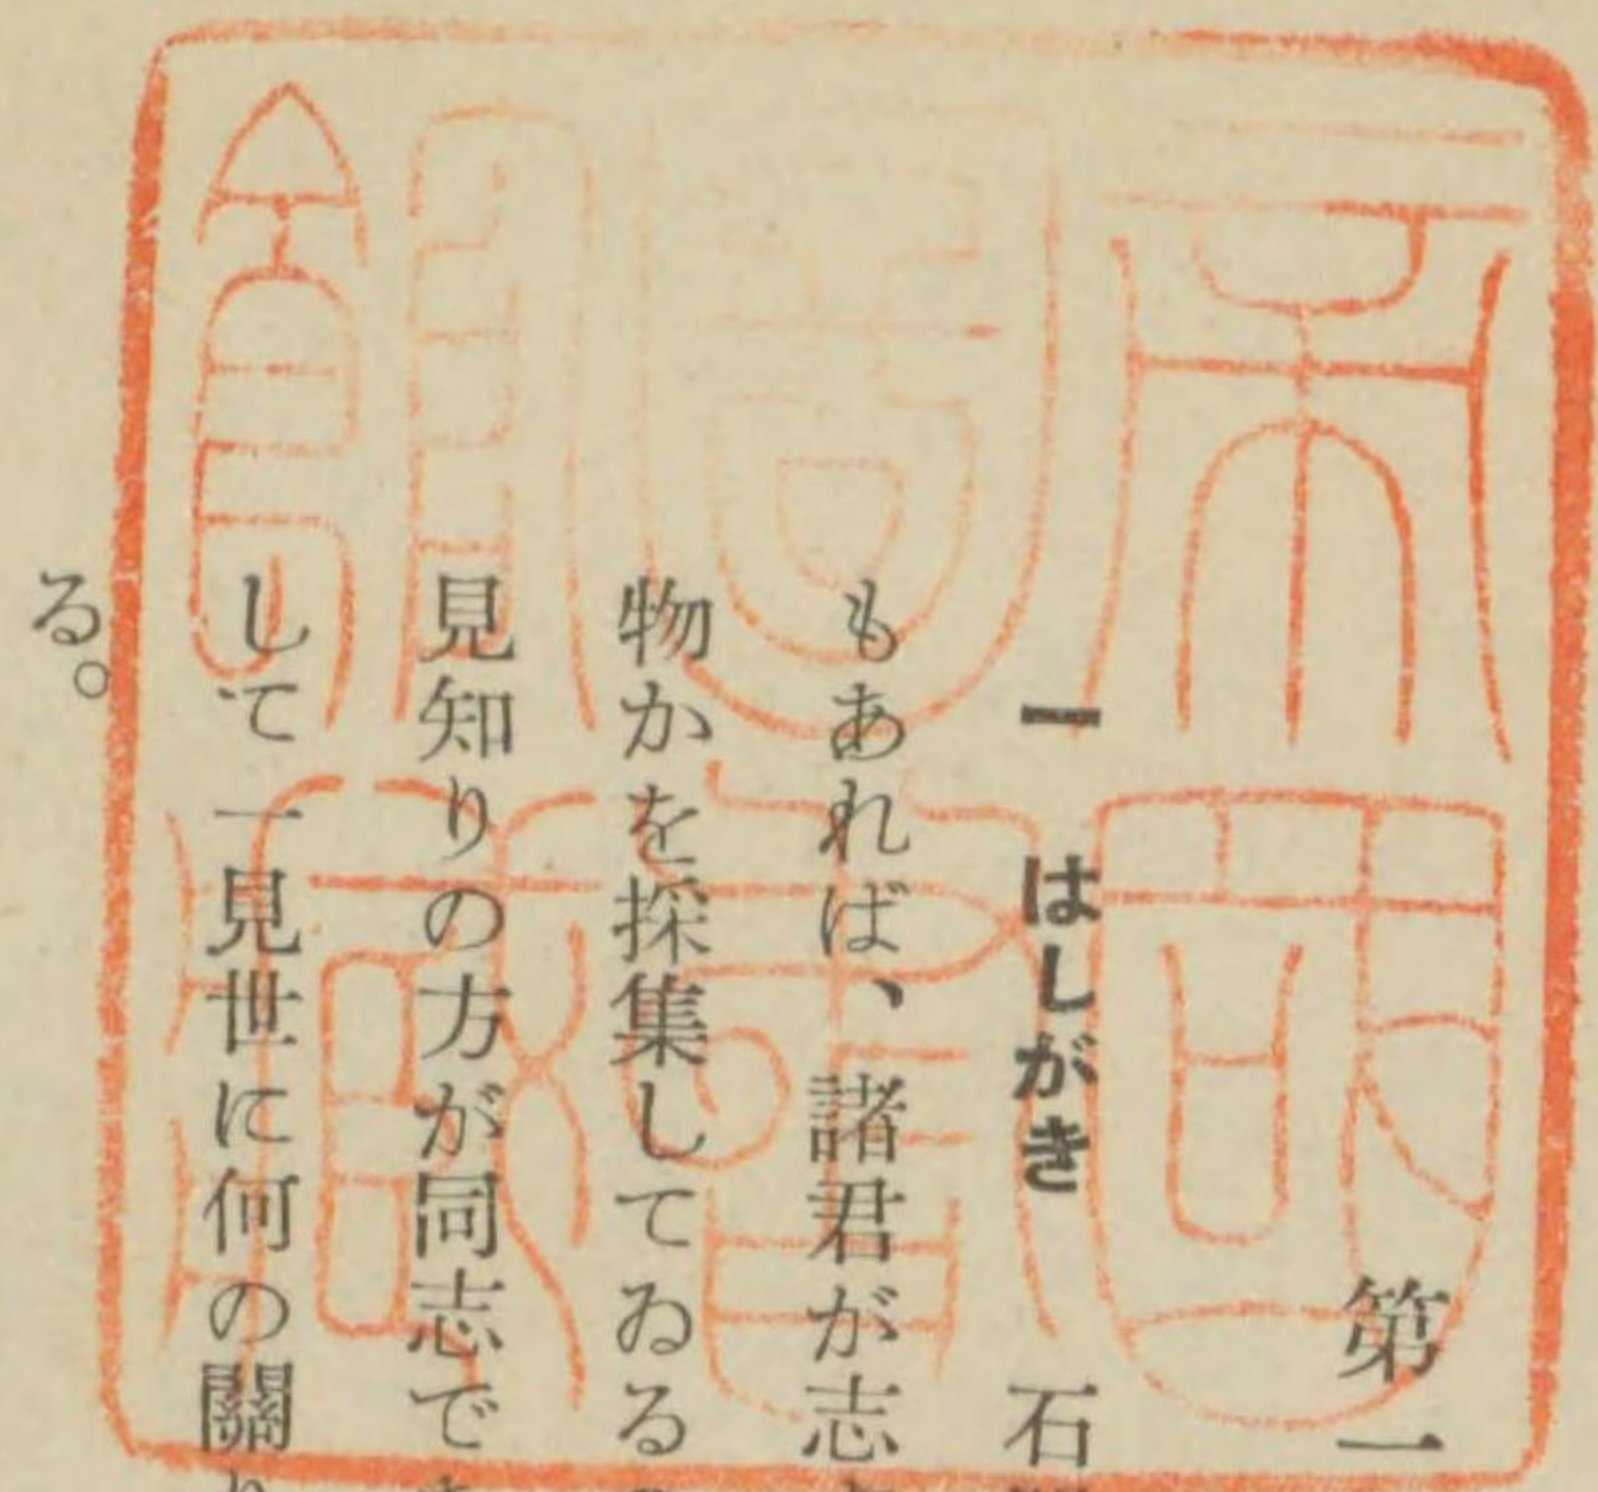 第一
一 はしがき 石
もあれば、諸君が志
物かを採集してゐる
見知りの方が同志で
して一見世に何の關
る。
帝國
圖書
館藏